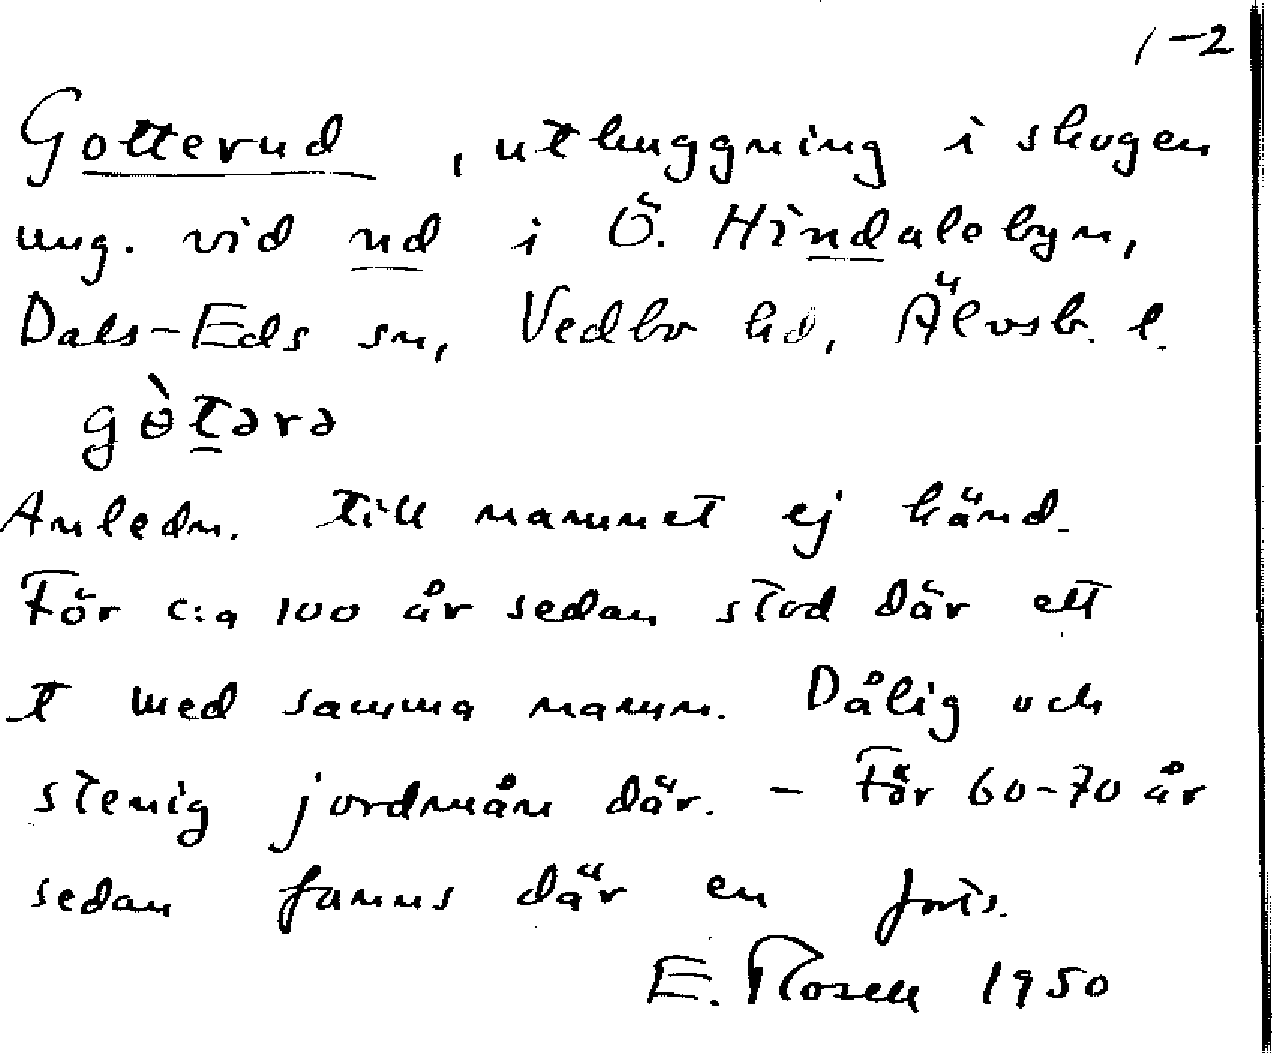 1-2
Gotterud, uthuggning i skogen
ung. vid nd i Ö. Hindalebyn,
Dals-Eds sn, Vedbo hd, Älvsb. l.
gòtərə
Anledn. till namnet ej känd.
För c:a 100 år sedan stod där ett
t med samma namn. Dålig och
stenig jordmån där. - För 60-70 år
sedan fanns där en forts.
E. Rosell 1950